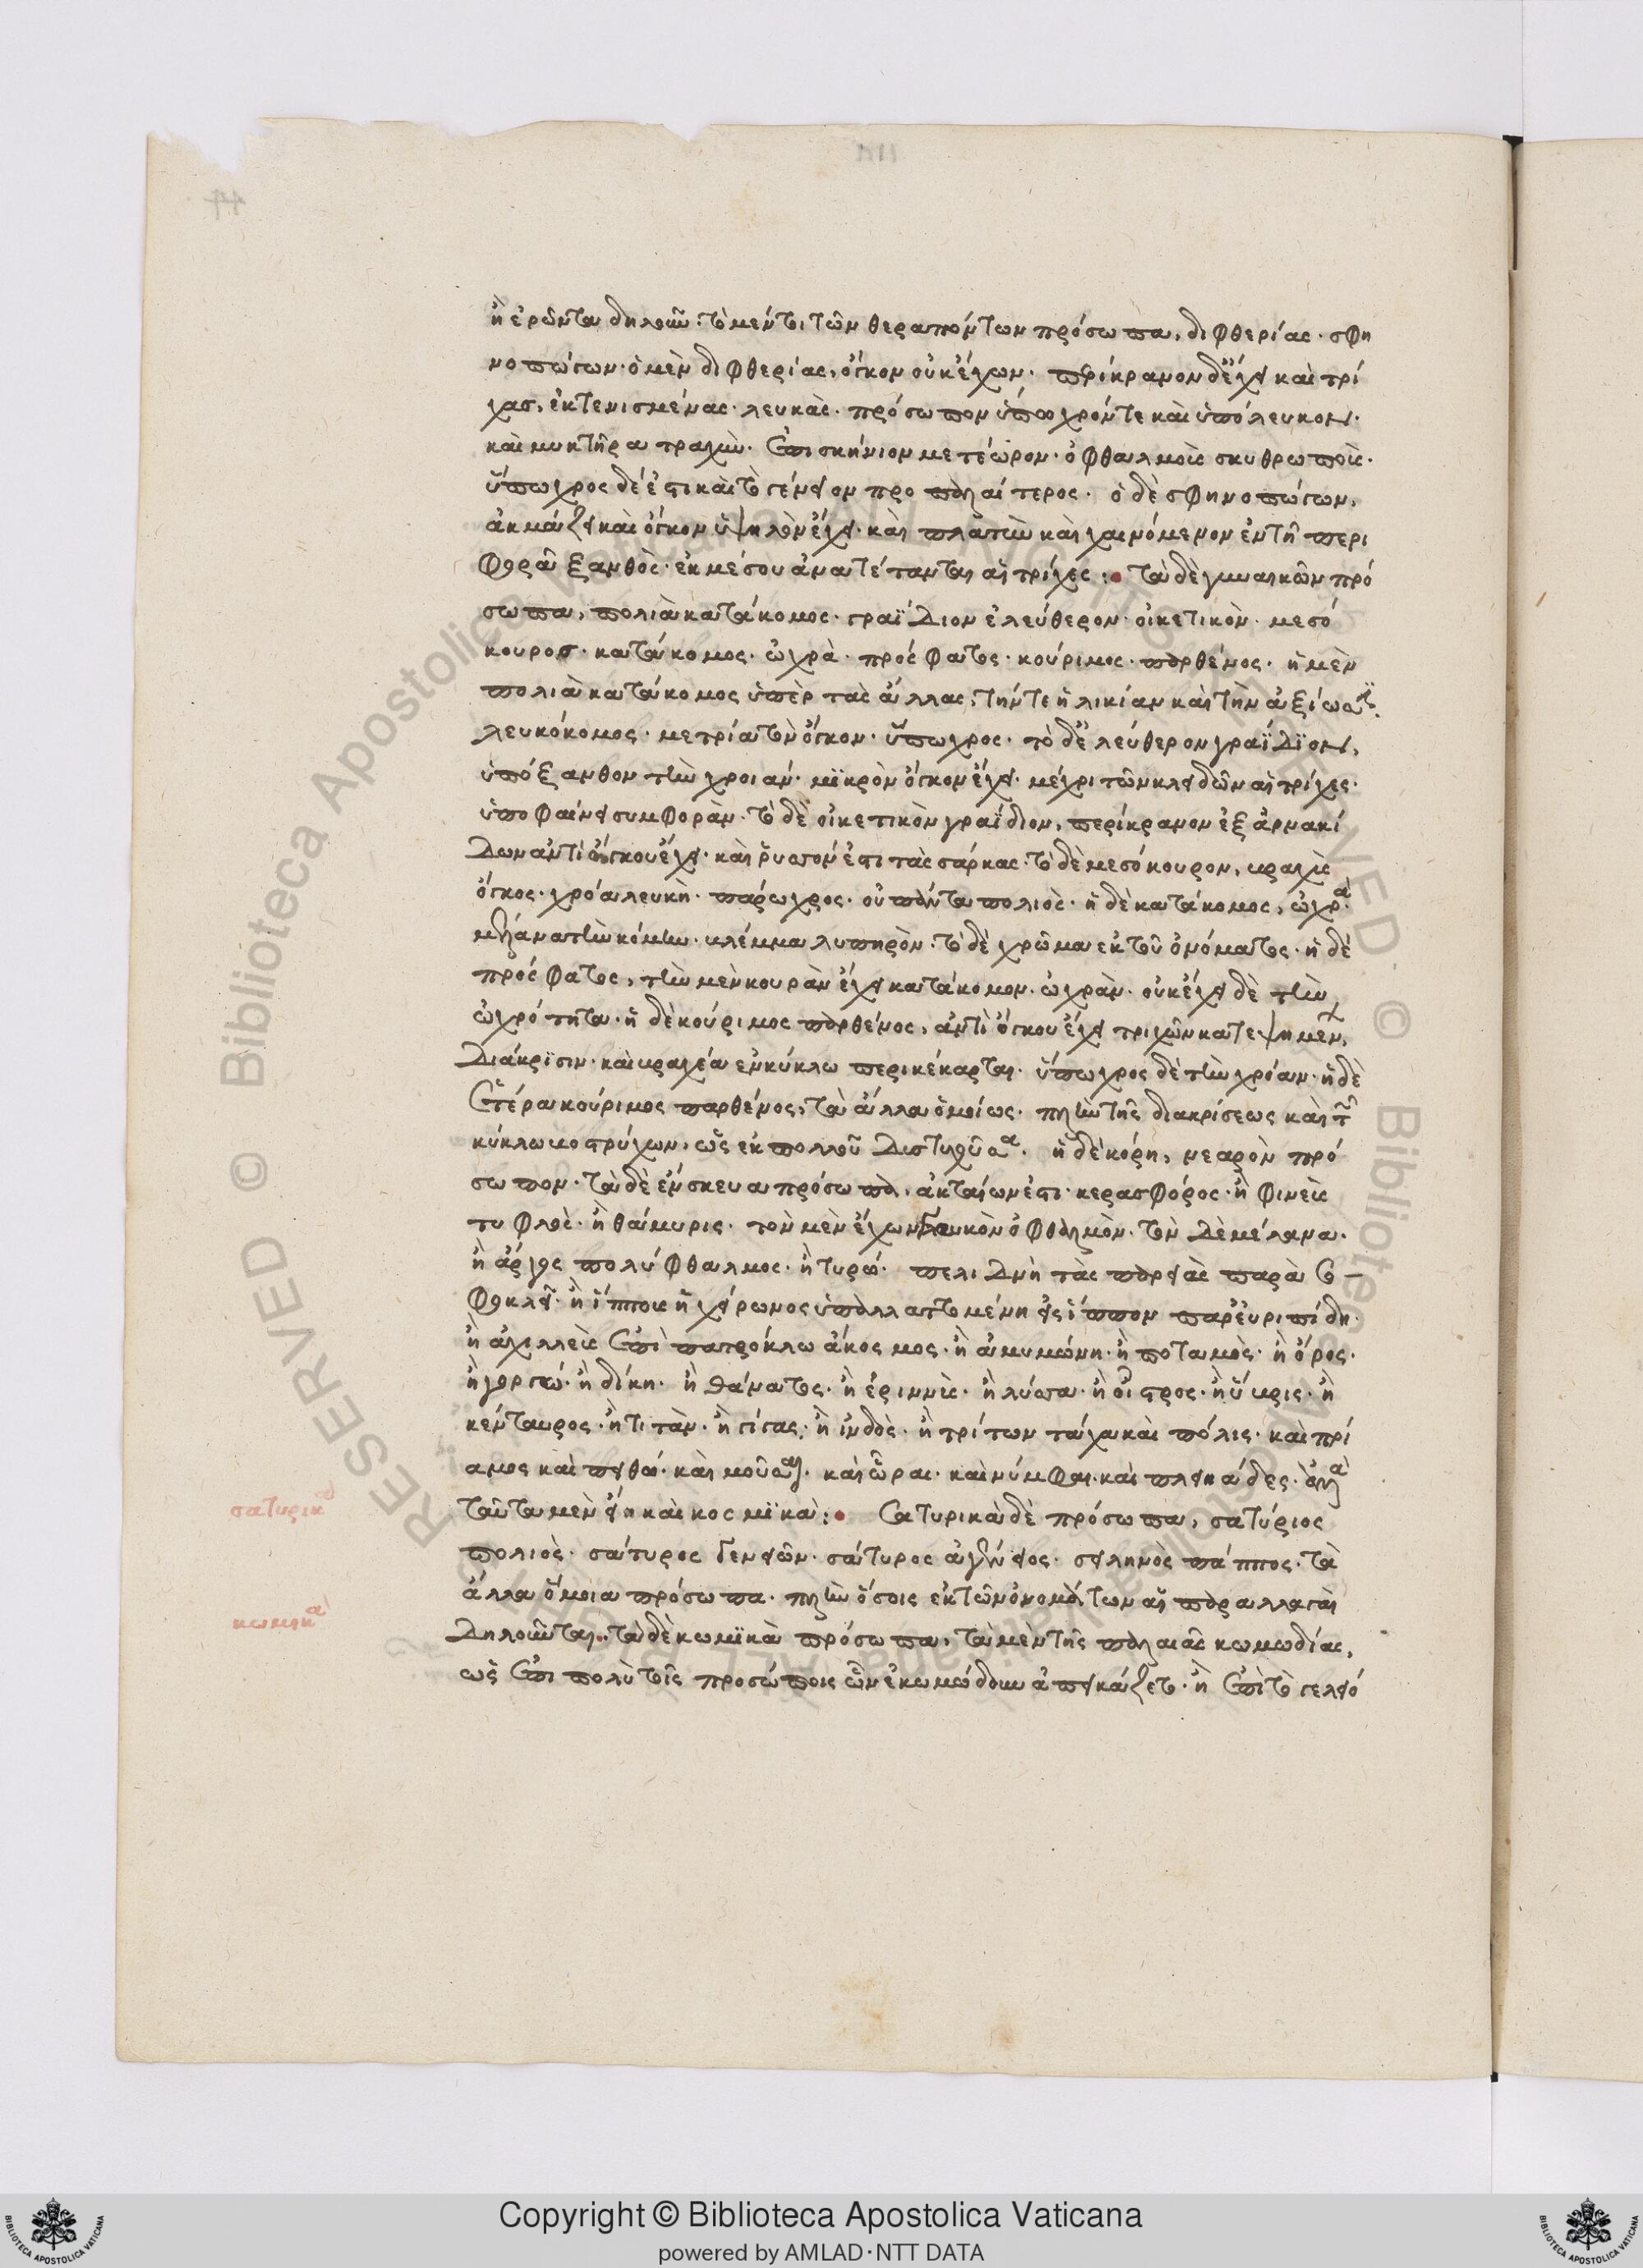 ἢ ἐρῶντα δηλοῦν· τὸ μέντοι τῶν θεραπόντων πρόσωπα, διφθερίας· σφη
νοπώγων· ὁ μὲν διφθερίας, ὄγκον οὐκ ἔχων· περίκρανον δὲ ἔχει καὶ τρί
χας, ἐκτενισμένας λευκάς· πρόσωπον ὕπωχρόν τε καὶ ὑπόλευκον·
καὶ μυκτῆρα τραχὺν· ἐπισκήνιον μετέωρον· ὀφθαλμοὺς σκυθρωπούς·
ὕπωχρος δέ ἐστι καὶ τὸ γένειον προπαλαίτερος· ὁ δὲ σφηνοπώγων,
ἀκμάζει καὶ ὄγκον ὑψηλὸν ἔχει· καὶ πλατὺν καὶ χαινόμενον ἐν τῆ περι
φορᾶ ξανθὸς· ἐκ μέσου ἀνατέτανται αἱ τρίχες: τὰ δὲ γυναικῶν πρό
σωπα, πολιὰ κατάκομος· γραΐδιον ἐλεύθερον· οἰκετικὸν· μεσό
κουρος· κατάκομος· ὠχρὰ· πρόσφατος· κούριμος· παρθένος· ἡ μὲν
πολιὰ κατάκομος ὑπὲρ τὰς ἄλλας, τήν τε ἡλικίαν καὶ τὴν ἀξίωσιν·
λευκόκομος· μετρία τὸν ὄγκον· ὕπωχρος· τὸ δ' ἐλεύθερον γραΐδιον,
ὑπόξανθον τὴν χροιάν· μικρὸν ὄγκον ἔχει· μέχρι τῶν κλειδῶν αἱ τρίχες·
ὑποφαίνει συμφορὰν· τὸ δὲ οἰκετικὸν γραΐδιον, περίκρανον ἐξ ἀρνακί
δων ἀντὶ ὄγκου ἔχει· καὶ ῥυσόν ἐστι τὰς σάρκας· τὸ δὲ μεσόκουρον, βραχὺς
ὄγκος· χρόα λευκὴ· πάρωχρος· οὐ πάντα πολιὸς· ἡ δὲ κατάκομος, ὠχρὰ·
μέλαινα τὴν κόμην· βλέμμα λυπηρὸν· τὸ δὲ χρῶμα ἐκ τοῦ ὀνόματος· ἡ δὲ
πρόσφατος, τὴν μὲν κουρὰν ἔχει κατάκομον ὠχρὰν· οὐκ ἔχει δὲ τὴν
ὠχρότητα· ἡ δὲ κούριμος παρθένος, ἀντὶ ὄγκου ἔχει τριχῶν κατεψημένων
διάκρισιν· καὶ βραχέα ἐν κύκλω περικέκαρται· ὕπωχρος δὲ τὴν χρόαν· ἡ δὲ
ἑτέρα κούριμος παρθένος, τὰ ἄλλα ὁμοίως· πλὴν τῆς διακρίσεως καὶ τῶν
κύκλω βοστρύχων, ὡς ἐκ πολλοῦ δυστυχοῦσα· ἡ δὲ κόρη, νεαρὸν πρό
σωπον· τὰ δὲ ἔνσκευα πρόσωπα, ἀκταίων ἐστι κερασφόρος· ἢ φινεὺς
τυφλὸς· ἢ θάμυρις· τὸν μὲν ἔχων γλαυκὸν ὀφθαλμὸν· τὸν δὲ μέλανα·
ἢ ἄργος πολυόφθαλμος· ἢ τυρώ· πελιδνὴ τὰς παρειὰς παρὰ σο
φοκλεῖ· ἢ ἵππου ἡ χείρωνος ὑπαλλαττομένη εἰς ἵππον παρ' εὐριπίδη·
ἢ ἀχιλλεὺς ἐπὶ πατρόκλω ἄκοσμος· ἢ ἀμυμώνη· ἢ ποταμὸς· ἢ ὄρος·
ἢ γοργώ· ἢ δίκη· ἢ θάνατος· ἢ ἐριννὺς· ἢ λύσσα· ἢ οἶστρος· ἢ ὕβρις· ἢ
κένταυρος· ἢ τιτὰν· ἢ γίγας· ἢ ἰνδὸς· ἢ τρίτων τάχα καὶ πόλις· καὶ πρί
αμος καὶ πειθώ· καὶ μοῦσαι· καὶ ὧραι· καὶ νύμφαι· καὶ πλειάδες·
ταῦτα μὲν εἴη καὶ κοσμικὰ: σατυρικὰ δὲ πρόσωπα, σατύριος
σατυρικά
πολιὸς· σάτυρος γενειῶν· σάτυρος ἀγένειος· σειληνὸς πάππος· τὰ
ἄλλα ὅμοια πρόσωπα· πλὴν ὅσοις ἐκ τῶν ὀνομάτων αἱ παραλλαγαὶ
κωμικά
δηλοῦνται· τὰ δὲ κωμικὰ πρόσωπα, τὰ μὲν τῆς παλαιᾶς κωμωδίας,
ὡς ἐπιπολὺ τοῖς προσώποις ὧν ἐκωμώδουν ἀπεικάζετο· ἢ ἐπὶ τὸ γελοιό
Copyright © Biblioteca Apostolica Vaticana
powered by AMLAD·NTT DATA